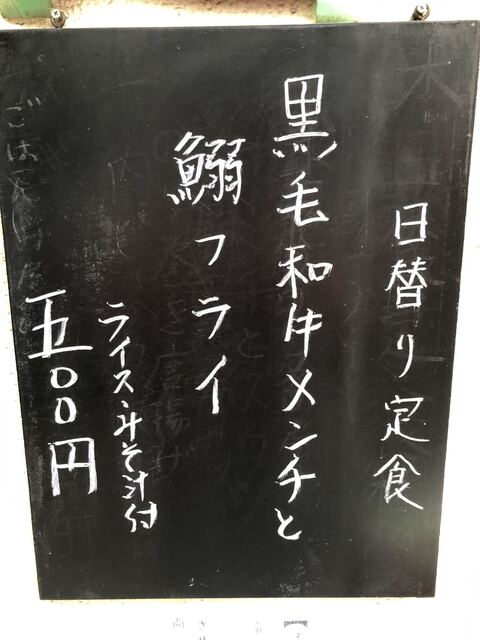 日替り定食
黒毛和牛メンチと
鰯フライ
ライス・みそ汁付
五00円